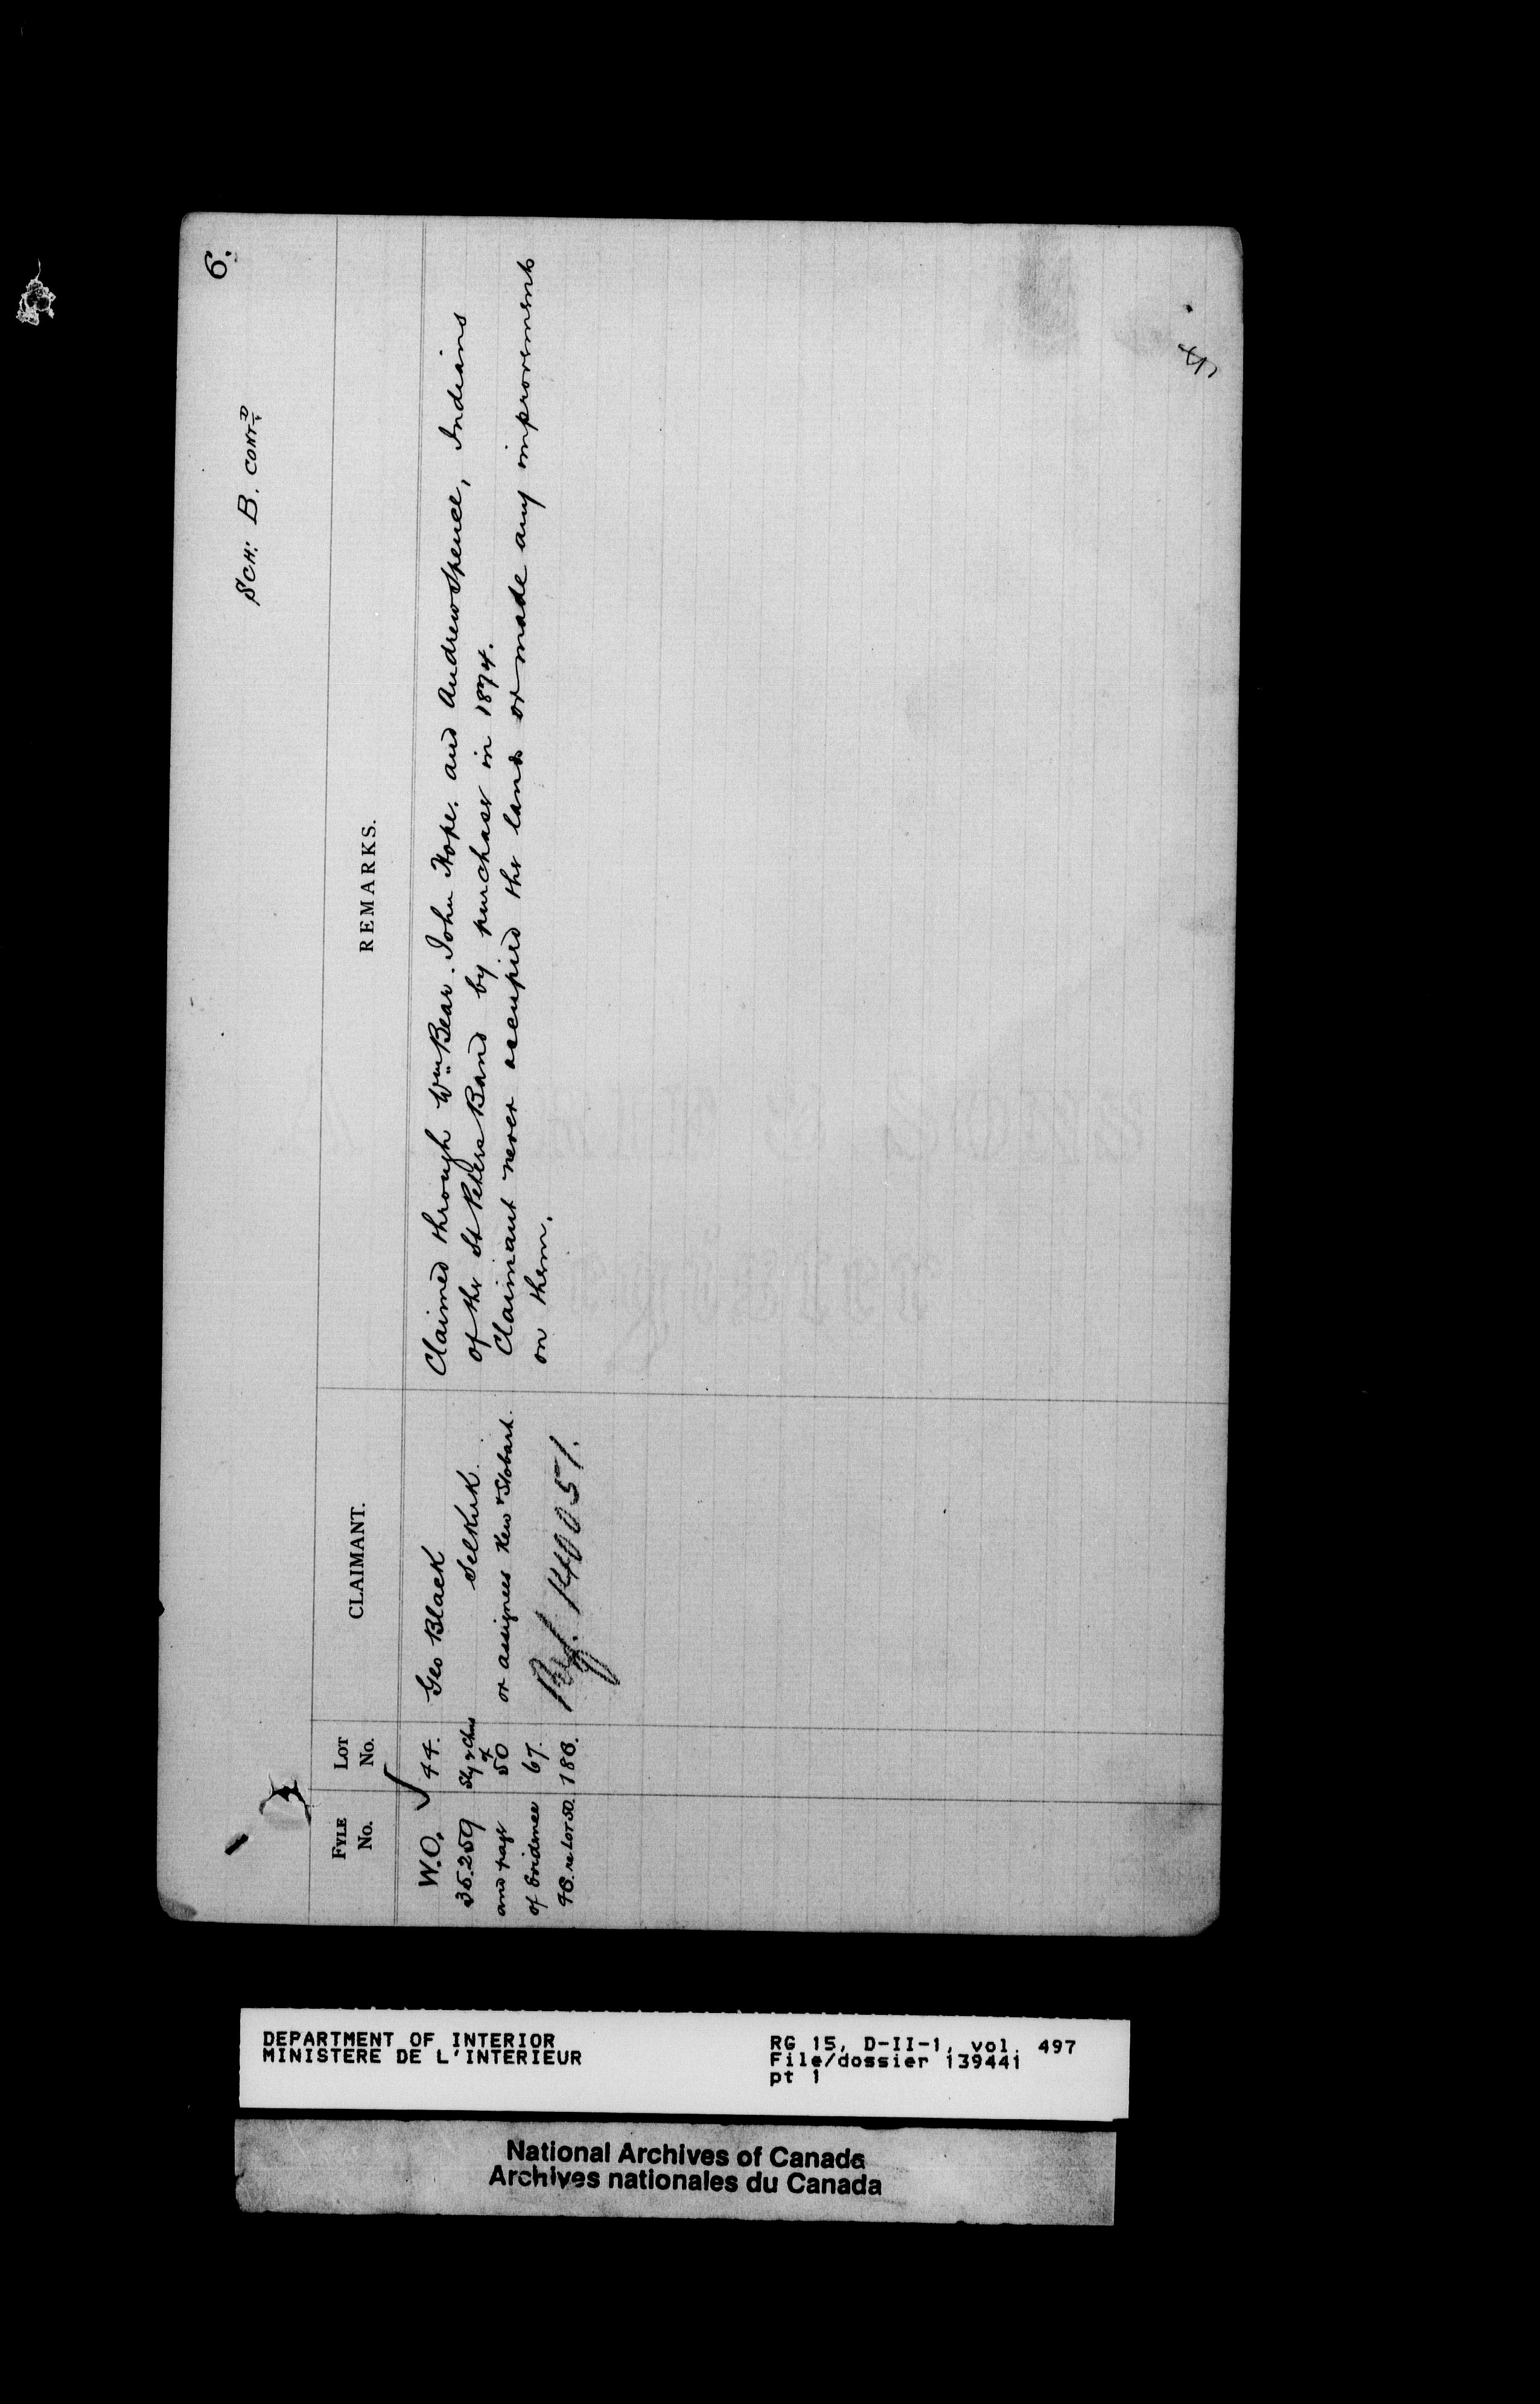 6.
Sch. B. Cont.d
FYLE No.
LOT No.
CLAIMANT.
REMARKS.
W.O. 44. Geo Black Claimed through Wm Bear. John Hope. and Andrew Spence, Indians
35.259 Sly 2 chns Selkirk. of the St Peters Band by purchase in 1874.
and page of 50 or assignees Kew & Stobart. Claimant never occupied the land or made any improvements
of Evidence 67. on them.
re Lot 50. 186. Ref. 140051.
DEPARTMENT OF INTERIOR
MINISTERE DE L'INTERIEUR
RG 15, D-II-1, vol. 497
File/dossier 139441
pt 1
National Archives of Canada
Archives nationales du Canada